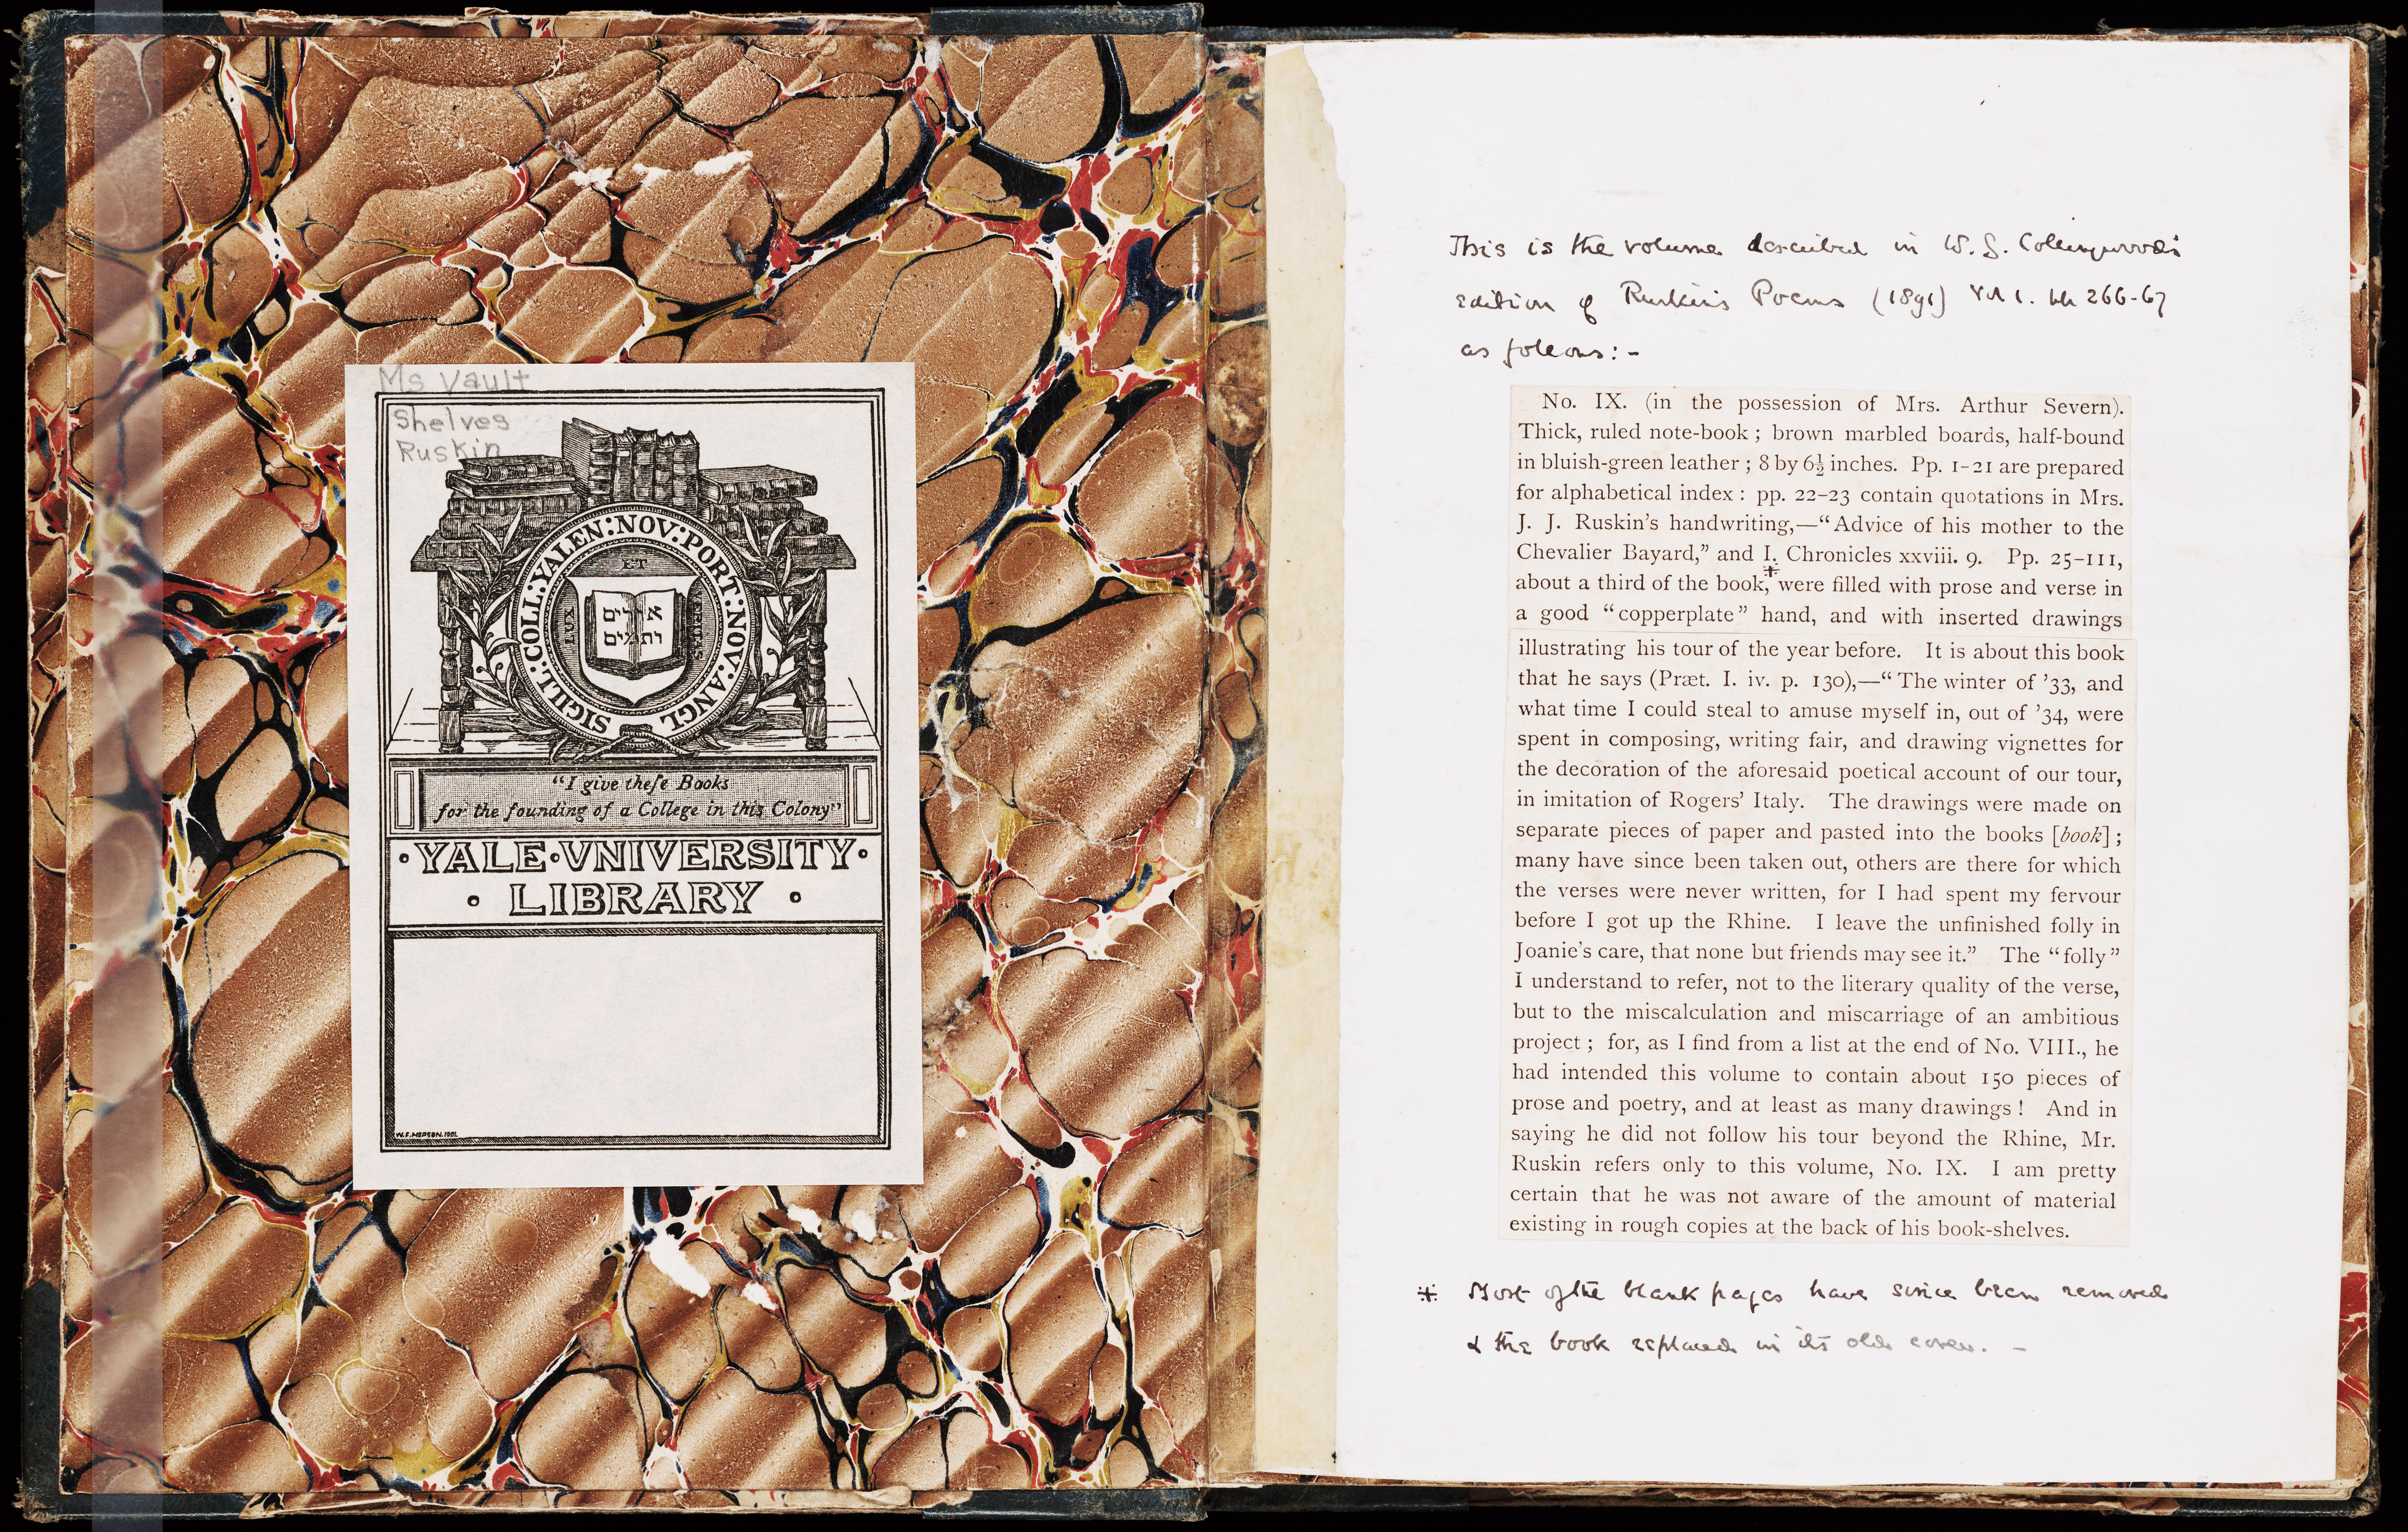 Ms Vault
Shelves
Ruskin
SIGILL:COLL:YALEN:NOV:PORT:NOV:ANGL
ET
LUX
VERITAS
אורים
ותמים
"I give theſe Books
for the founding of a College in this Colony"
·YALE·VNIVERSITY·
· LIBRARY ·
W.F.HOPSON.1901.
This is the volume described in W. G. Collingwood's
edition of Ruskin's Poems (1891) Vol 1. pp 266-67
as follows:-
No. IX. (in the possession of Mrs. Arthur Severn).
Thick, ruled note-book ; brown marbled boards, half-bound
in bluish-green leather ; 8 by 6½ inches. Pp. 1-21 are prepared
for alphabetical index : pp. 22-23 contain quotations in Mrs.
J. J. Ruskin's handwriting,—"Advice of his mother to the
Chevalier Bayard," and I. Chronicles xxviii. 9. Pp. 25-111,
about a third of the book,* were filled with prose and verse in
a good "copperplate" hand, and with inserted drawings
illustrating his tour of the year before. It is about this book
that he says (Præt. I. iv. p. 130),—"The winter of '33, and
what time I could steal to amuse myself in, out of '34, were
spent in composing, writing fair, and drawing vignettes for
the decoration of the aforesaid poetical account of our tour,
in imitation of Rogers' Italy. The drawings were made on
separate pieces of paper and pasted into the books [book] ;
many have since been taken out, others are there for which
the verses were never written, for I had spent my fervour
before I got up the Rhine. I leave the unfinished folly in
Joanie's care, that none but friends may see it." The "folly"
I understand to refer, not to the literary quality of the verse,
but to the miscalculation and miscarriage of an ambitious
project ; for, as I find from a list at the end of No. VIII., he
had intended this volume to contain about 150 pieces of
prose and poetry, and at least as many drawings ! And in
saying he did not follow his tour beyond the Rhine, Mr.
Ruskin refers only to this volume, No. IX. I am pretty
certain that he was not aware of the amount of material
existing in rough copies at the back of his book-shelves.
* Most of the blank pages have since been removed
& the book replaced in its old cover. -